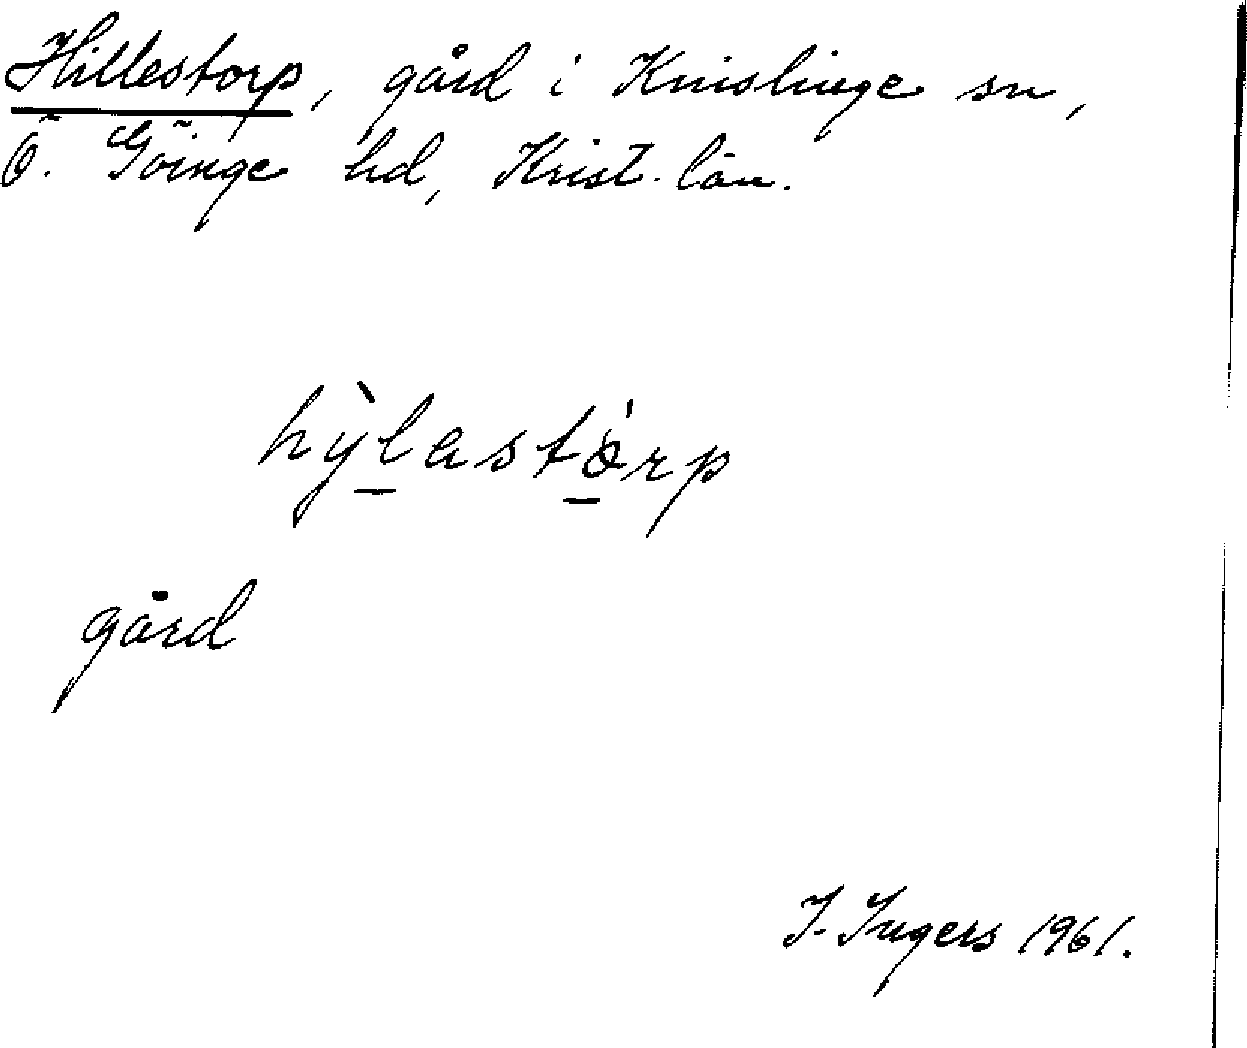 Hillestorp, gård i Knislinge sn,
Ö. Göinge hd, Krist. län.
hỳlastórp
gård
I. Ingers 1961.